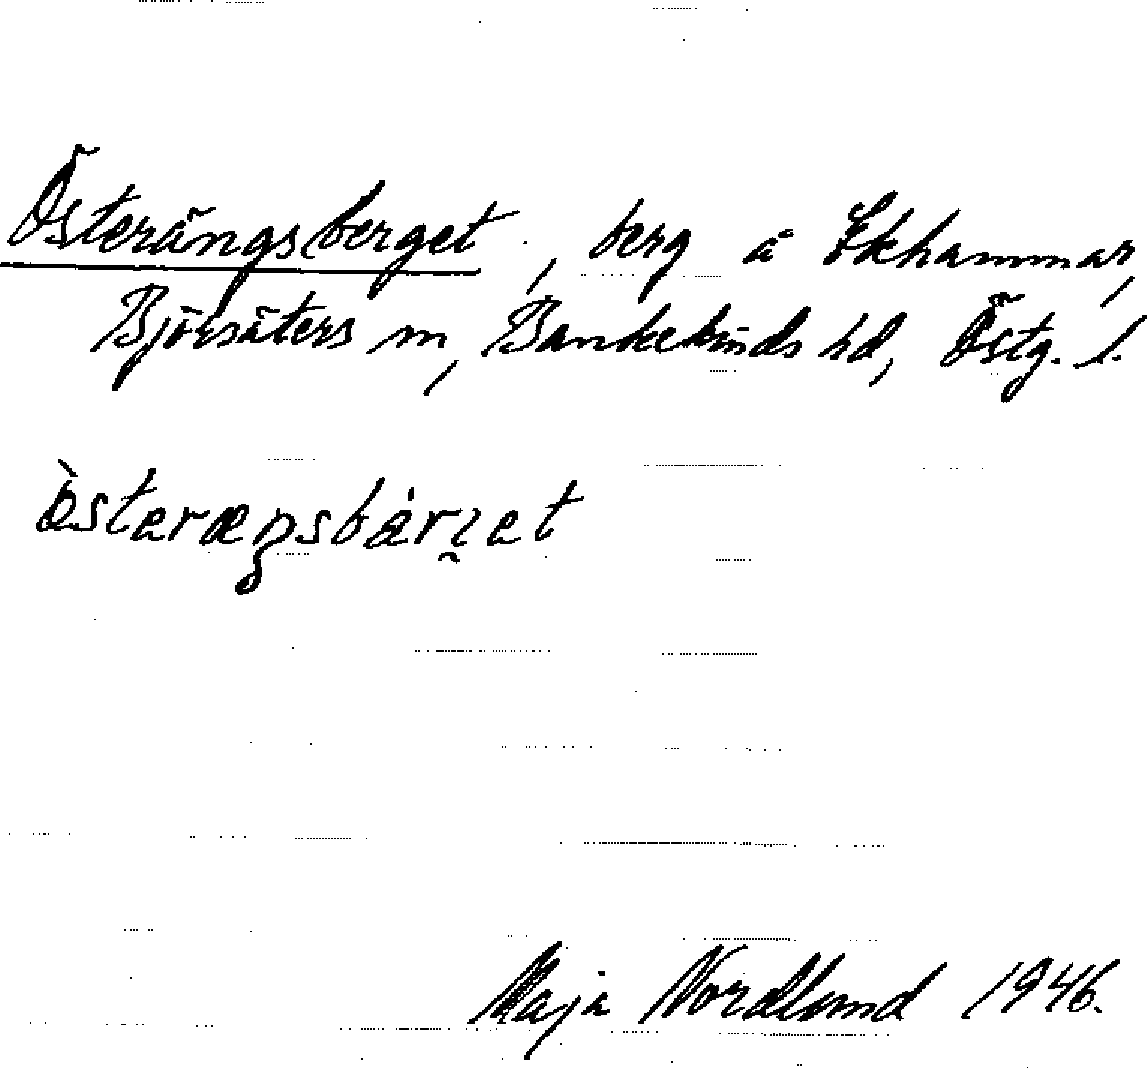 Österängsberget, berg å Ekhammar,
Björsäters sn, Bankekinds hd, Östg. l.
ö̀stəræŋsbárjət
Maja Nordlund 1946.